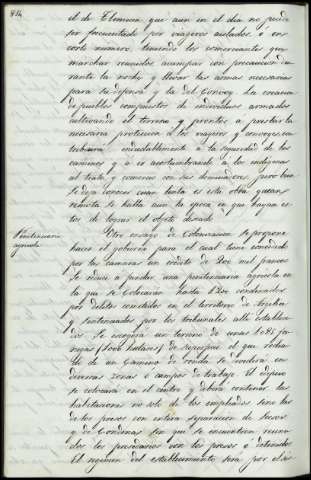 814
el de Tlemcen que aun en el dia no puede
ser frecuentado por viageros aislados ó en
corto número, teniendo los comerciantes que
marchar reunidos acampar con precaucion du
rante la noche y llevar las armas necesarias
para su defensa y la del Convoy. La cercania
de pueblos compuestos de individuos armados
cultivando el terreno y prontos a prestar la
necesaria proteccion á los viageros y convoyes, con
tribuirá indudablemente á la seguridad de los
caminos y á ir acostumbrando a los indigenas
al trato y comercio con sus dominadores, pero bien
se deja conocer cuan lenta es esta obra y cuan
remota se halla aun la época en que hayan es
tos de lograr el objeto deseado.
Penitenciaria
agricola
Otro ensayo de Colonizacion se propone
hacer el gobierno para el cual tiene concedido
por las camaras un crédito de 200 mil francos.
Se reduce á fundar una penitenciaria agricola en
la que se colocarán hasta 1200 condenados
por delitos cometidos en el territorio de Argelia
y sentenciados por los tribunales alli estableci
dos. Se escogerá un terreno de unas 1.085 fa
negas (1000 hectares) de superficie el que rodea
do de un camino de ronda se dividirá en
diversas zonas ó campos de trabajo. El deposito
se colocará en el centro y deberá contener las
habitaciones no solo de los empleados sino las
de los presos con entera separacion de sexos
y de Condenas sin que se encuentren reuni
dos los presidiarios con los presos ó detenidos.
El regimen del establecimiento será por el dis